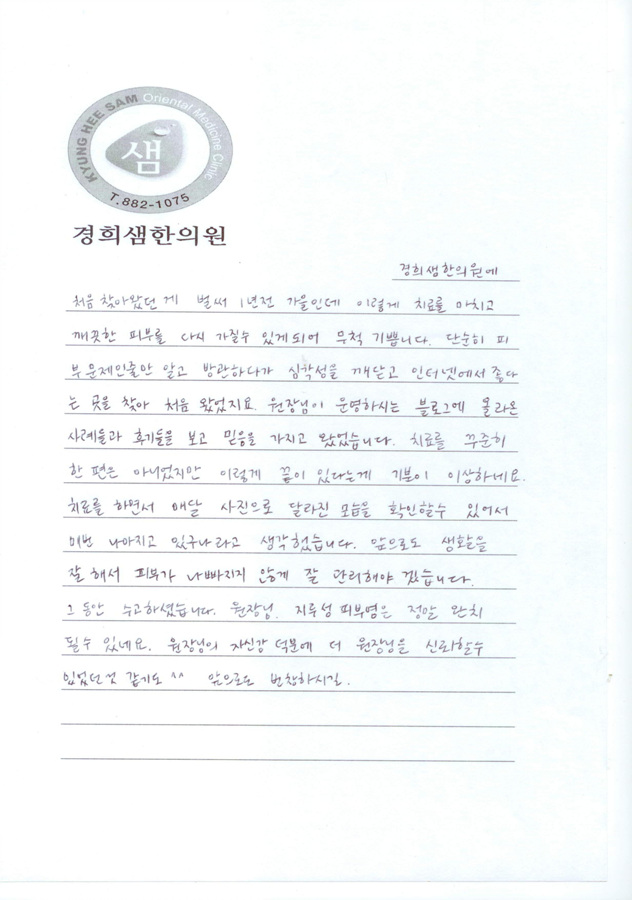 KYUNG HEE SAM Oriental Medicine Clinic
샘
T.882-1075
경희샘한의원
경희샘한의원에
처음 찾아왔던 게 벌써 1년전 가을인데 이렇게 치료를 마치고
깨끗한 피부를 다시 가질수 있게되어 무척 기쁩니다. 단순히 피
부 문제인줄만 알고 방관하다가 심각성을 깨닫고 인터넷에서 좋다
는 곳을 찾아 처음 왔었지요. 원장님이 운영하시는 블로그에 올라온
사례들과 후기들을 보고 믿음을 가지고 왔었습니다. 치료를 꾸준히
한 편은 아니었지만 이렇게 끝이 있다는게 기분이 이상하네요.
치료를 하면서 매달 사진으로 달라진 모습을 확인할수 있어서
매번 나아지고 있구나라고 생각했습니다. 앞으로도 생활을
잘 해서 피부가 나빠지지 않게 잘 관리해야 겠습니다.
그 동안 수고하셨습니다. 원장님. 지루성 피부염은 정말 완치
될수 있네요. 원장님의 자신감 덕분에 더 원장님을 신뢰할수
있었던것 같기도 ^^ 앞으로도 번창하시길.